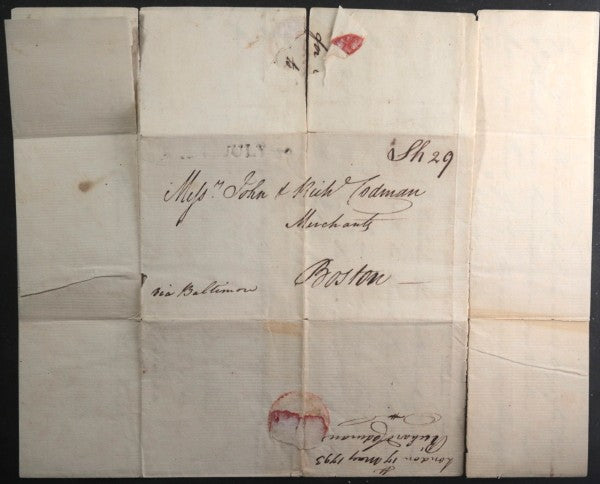 JULY
Sh 29
Messrs John & Richd Codman
Merchants
Boston
via Baltimore
London 17 May 1795
Richard Codman